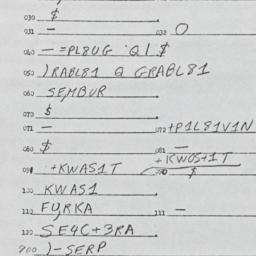 030 $
031 — 032 O
040 — =PL8UG Q1 $
050 )RABL81 Q GRABL81
060 SEMBUR
070 $
071 — 072 +P1L81V1N
080 $ 081 —
+KWOS+1T
+KWAS1T $
100 KWAS1
110 FURKA 111 —
120 SE4C+3RA
200 )-SERP